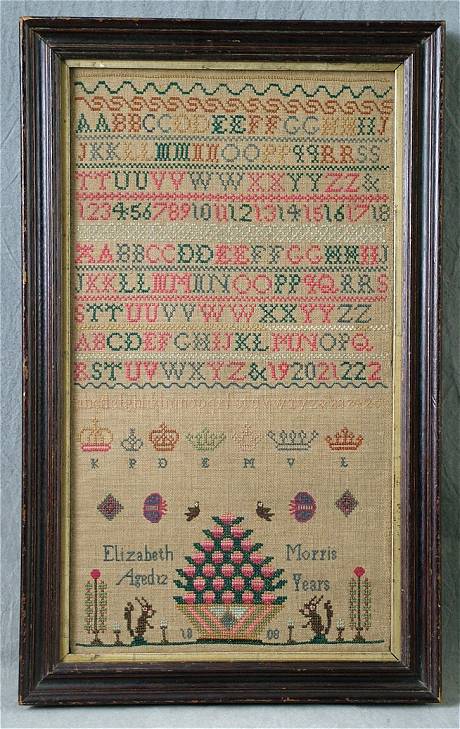 AABBCCDDEEFFGGHHIJ
JKKLLMMNNOOPPqqRRSS
TTUUVVWWXXYYZZ&
123456789101112131415161718
AABBCCDDEEFFGGHHIJ
JKKLLMMNNOOPPqQRRS
STTUUVVWWXXYYZZ
ABCDEFGHIJKLMNOPQ
RSTUVWXYZ&192021222
K P D E M V L
Elizabeth Morris
Aged 12 Years
18 08